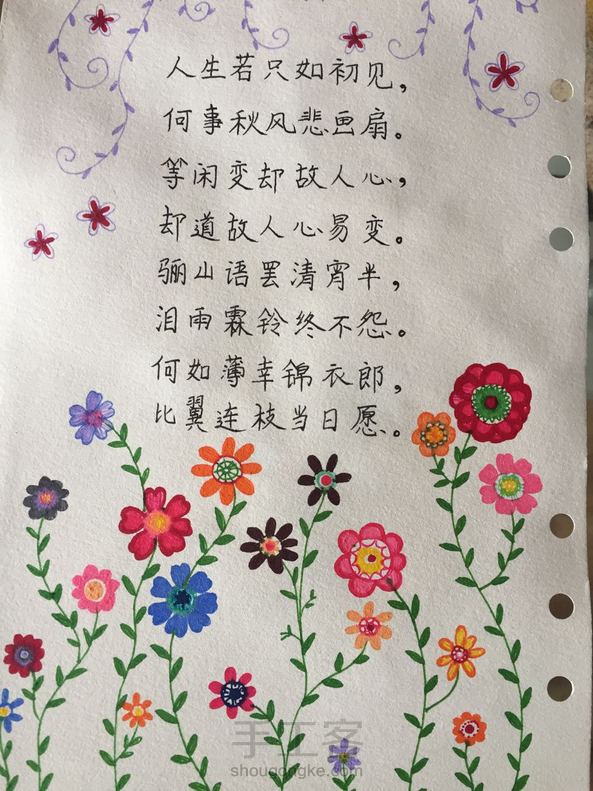 人生若只如初见，
何事秋风悲画扇。
等闲变却故人心，
却道故人心易变。
骊山语罢清宵半，
泪雨霖铃终不怨。
何如薄幸锦衣郎，
比翼连枝当日愿。
手工客
shougongke.com